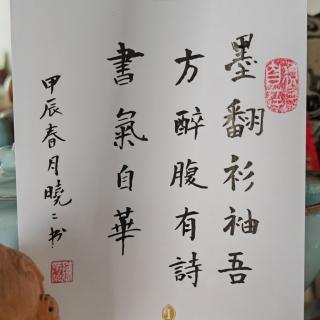 墨翻衫袖吾
方醉腹有詩
書氣自華
甲辰春月曉二书